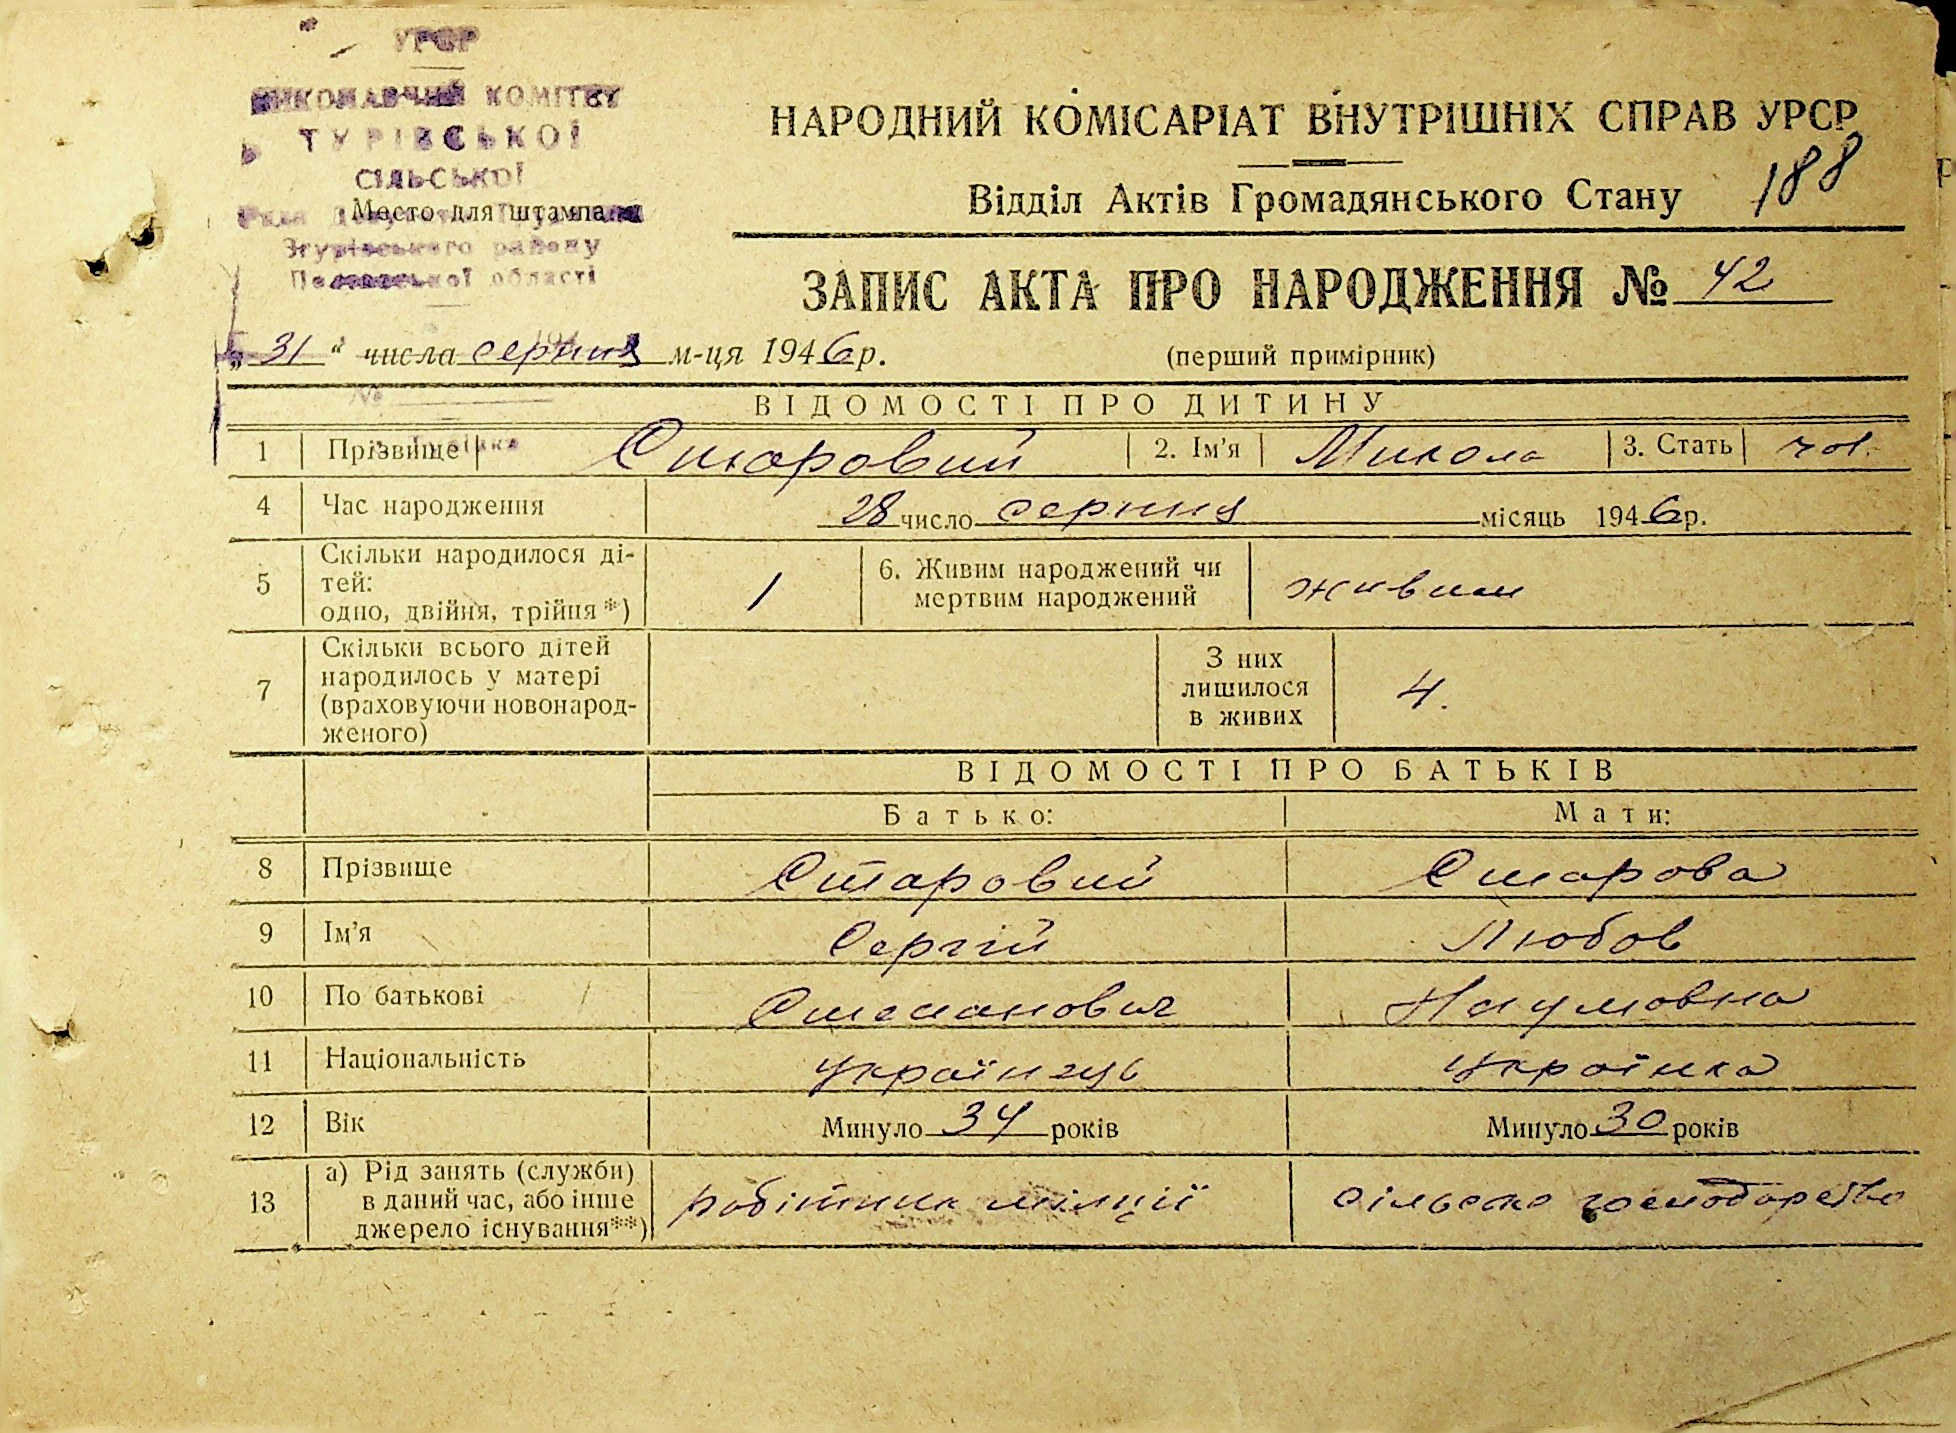 УРСР
ВИКОНАВЧИЙ КОМІТЕТ
ТУРІВСЬКОЇ
СІЛЬСЬКОЇ
Место для штампа
Згурівського району
Полтавської області
НАРОДНИЙ КОМІСАРІАТ ВНУТРІШНІХ СПРАВ УРСР
Відділ Актів Громадянського Стану 188
ЗАПИС АКТА ПРО НАРОДЖЕННЯ № 42
„31“ числа серпня м-ця 1946 р.
(перший примірник)
ВІДОМОСТІ ПРО ДИТИНУ
1 Прізвище Старовий 2. Ім'я Микола 3. Стать чол.
4 Час народження 28 число серпня місяць 1946 р.
5 Скільки народилося ді-
тей:
одно, двійня, трійня*) 1 6. Живим народжений чи
мертвим народжений живим
7 Скільки всього дітей
народилось у матері
(враховуючи новонарод-
женого)
З них
лишилося
в живих 4.
ВІДОМОСТІ ПРО БАТЬКІВ
Батько: Мати:
8 Прізвище Старовий Старова
9 Ім'я Сергій Любов
10 По батькові Степанович Наумовна
11 Національність Українець Українка
12 Вік Минуло 34 років Минуло 30 років
13 а) Рід занять (служби)
в даний час, або інше
джерело існування**) робітник міліції сільське господарство